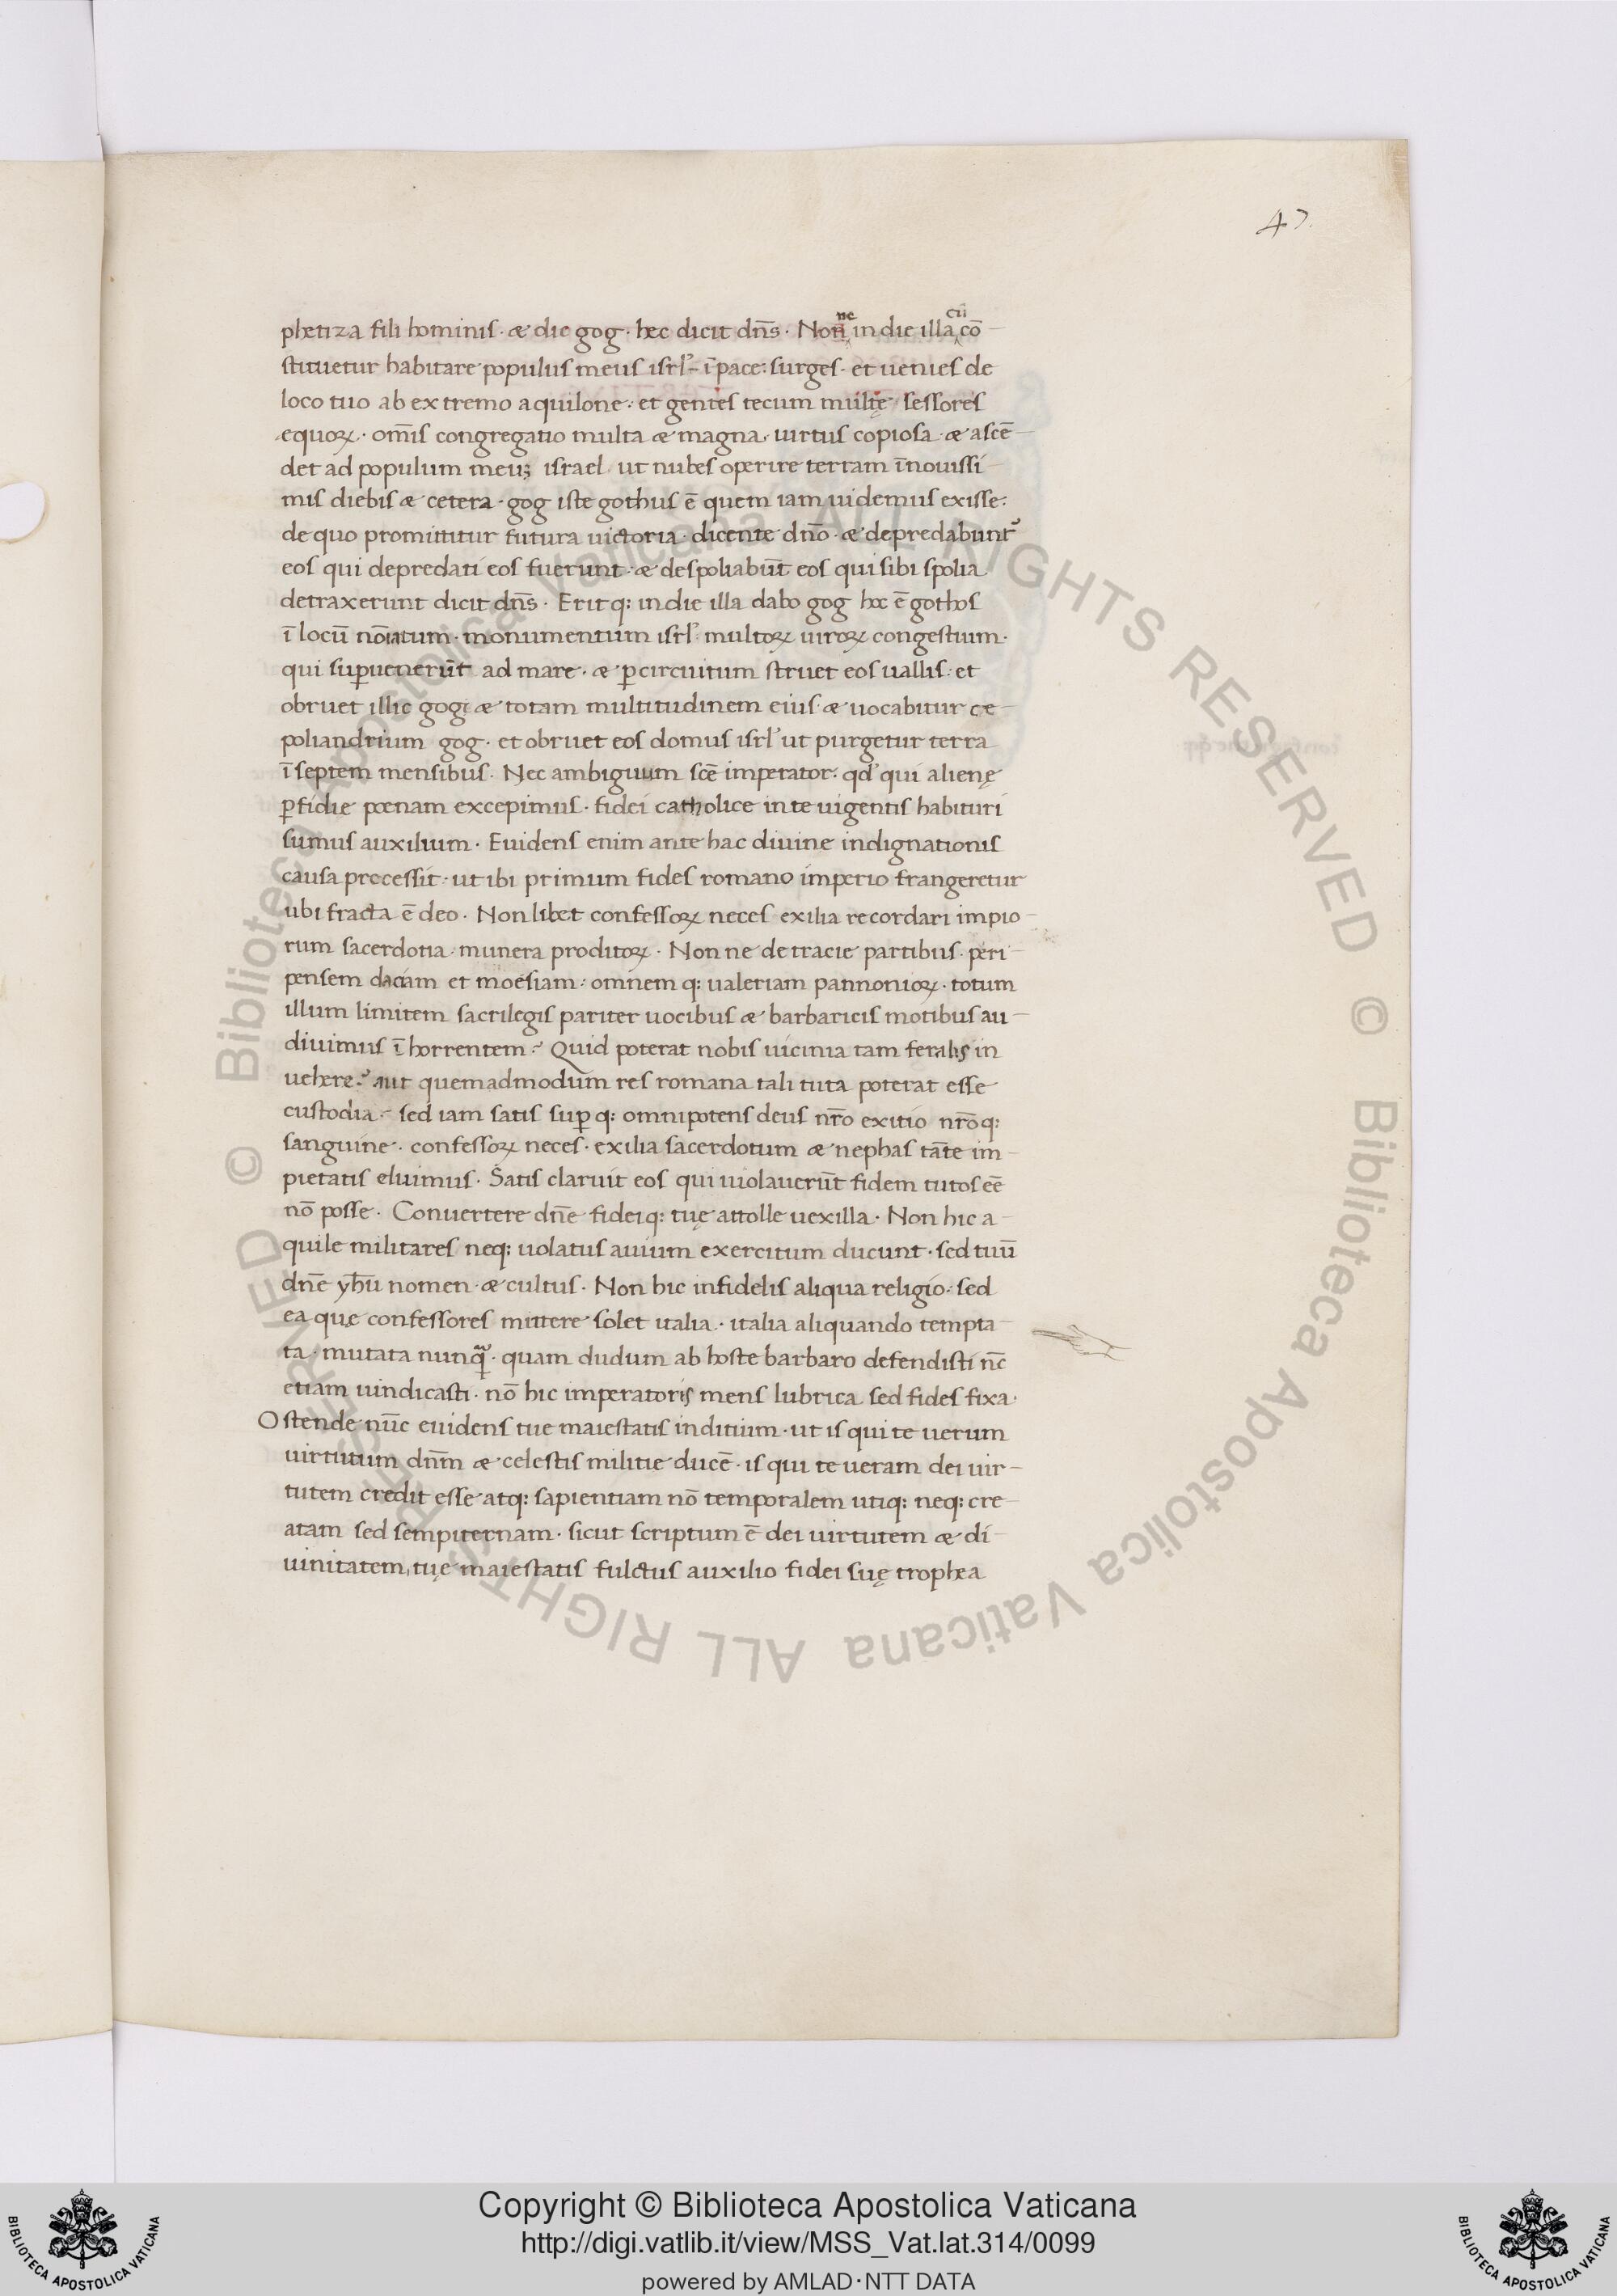 47.
phetiza fili hominis · æ dic gog · hec dicit dn̄s · Non ne in die illa cū cō
stituetur habitare populus meus isrl’ ī pace: surges · et uenies de
loco tuo ab extremo aquilone · et gentes tecum multę sessores
equoꝝ · om̄is congregatio multa æ magna · uirtus copiosa · æ ascē
det ad populum meuꝫ israel · ut nubes operire terram ī nouissi
mis diebis æ cetera · gog iste gothus ē quem iam uidemus exisse:
de quo promittitur futura uictoria · dicente dn̄o · æ depredabunt᷑
eos qui depredati eos fuerunt · æ despoliabūt eos qui sibi spolia
detraxerunt dicit dn̄s · Erit q: in die illa dabo gog hoc ē gothos
ī locū noīatum · monumentum isrl’ multoꝝ uiroꝝ congestum ·
qui suꝑuenerūt ad mare · æ ꝑ circuitum struet eos uallis: et
obruet illic gog æ totam multitudinem eius · æ uocabitur ce
poliandrium gog · et obruet eos domus isrl’ ut purgetur terra
ī septem mensibus · Nec ambiguum scē imperator · qd’ qui alienę
ꝑfidie poenam excepimus · fidei catholice in te uigentis habituri
sumus auxilium · Euidens enim ante hac diuine indignationis
causa precessit · ut ibi primum fides romano imperio frangeretur
ubi fracta ē deo · Non libet confessoꝝ neces exilia recordari impio
rum sacerdotia · munera proditoꝝ · Non ne de tracie partibus · peri
pensem daciam et moesiam · omnem q: ualeriam pannonioꝝ · totum
illum limitem sacrilegis pariter uocibus æ barbaricis motibus au
diuimus ī horrentem ? Quid poterat nobis uicinia tam feralis in
uehere ? aut quemadmodum res romana tali tuta poterat esse
custodia · sed iam satis suꝑ q: omnipotens deus nr̄o exitio nr̄o q:
sanguine · confessoꝝ neces · exilia sacerdotum æ nephas tāte im
pietatis eluimus · Satis claruit eos qui uiolauerūt fidem tutos eē
nō posse · Conuertere dn̄e fidei q: tuę attolle uexilla · Non hic a
quile militares neq: uolatus auium exercitum ducunt · sed tuū
dn̄e yh̄u nomen · æ cultus · Non hic infidelis aliqua religio · sed
ea quę confessores mittere solet italia · italia aliquando tempta
ta · mutata nunqᷓ · quam dudum ab hoste barbaro defendisti nc̄
etiam uindicasti · nō hic imperatoris mens lubrica sed fides fixa ·
Ostende nūc euidens tue maiestatis inditium · ut is qui te uerum
uirtutum dn̄m æ celestis militie ducē · is qui te ueram dei uir
tutem credit esse atq: sapientiam nō temporalem utiq: neq: cre
atam sed sempiternam · sicut scriptum ē dei uirtutem æ di
uinitatem, tuę maiestatis fulctus auxilio fidei suę trophea
© Biblioteca Apostolica Vaticana ALL RIGHTS RESERVED © Biblioteca Apostolica Vaticana ALL RIGHTS RESERVED
Copyright © Biblioteca Apostolica Vaticana
http://digi.vatlib.it/view/MSS_Vat.lat.314/0099
powered by AMLAD·NTT DATA
BIBLIOTECA APOSTOLICA VATICANA
BIBLIOTECA APOSTOLICA VATICANA